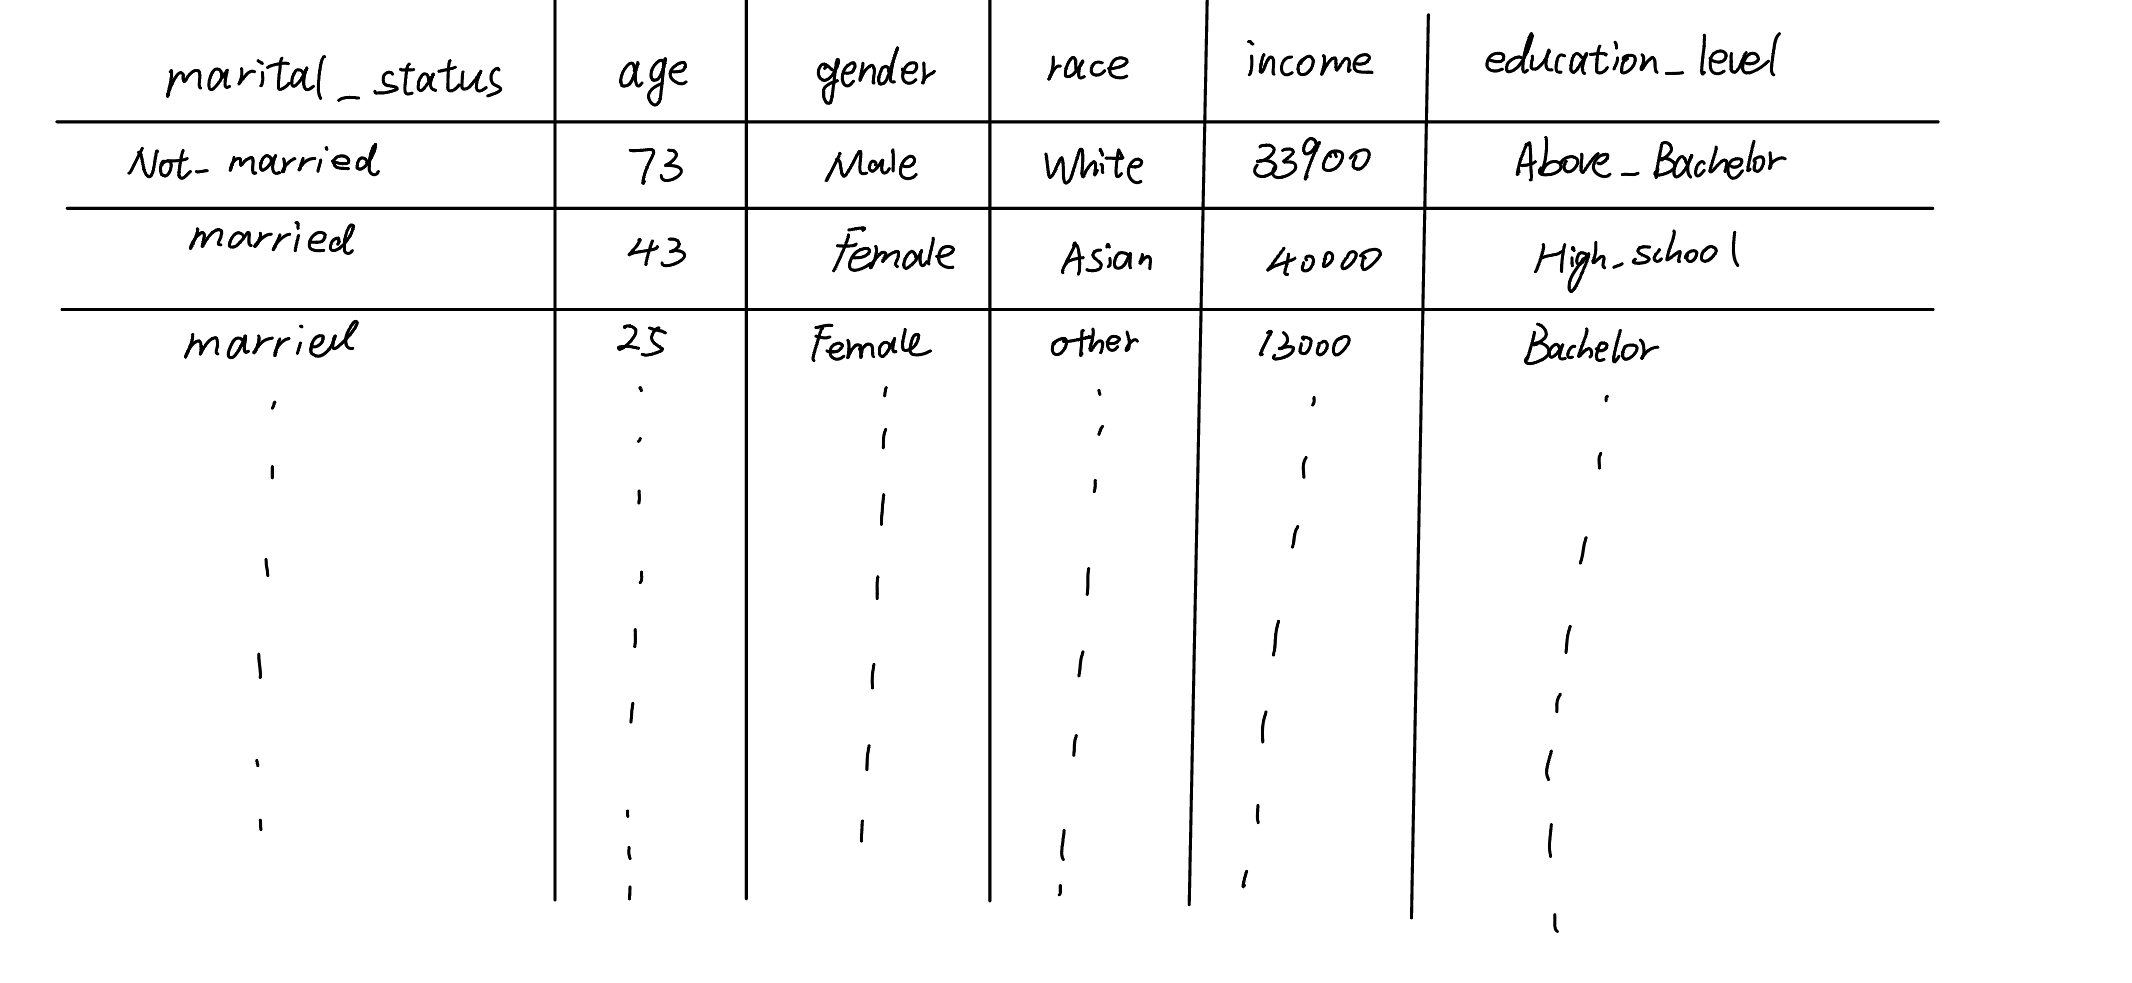 marital_status age gender race income education_level
Not_married 73 Male White 33900 Above_Bachelor
married 43 Female Asian 40000 High_school
married 25 Female other 13000 Bachelor